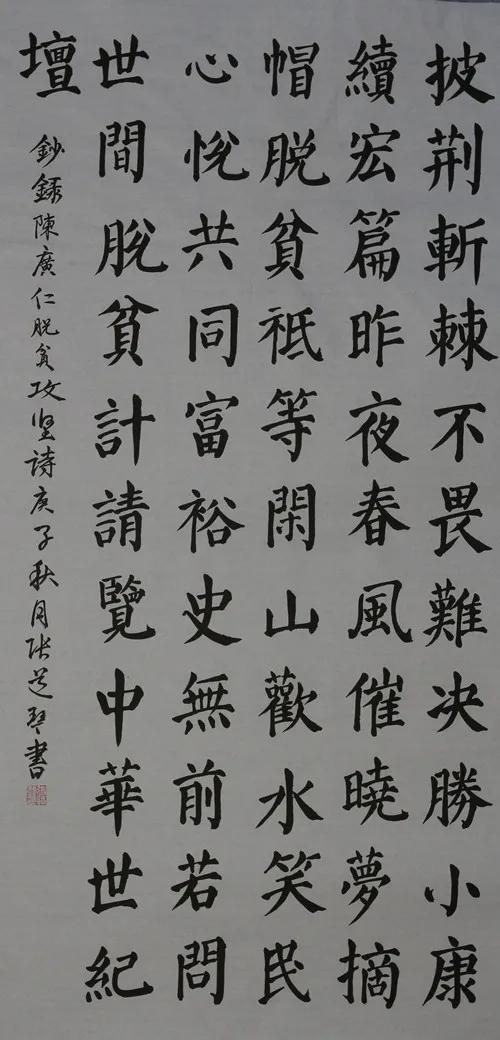 披荆斬棘不畏難决勝小康
續宏篇昨夜春風催曉夢摘
帽脱貧祗等閑山歡水笑民
心悦共同富裕史無前若問
世間脱貧計請覽中華世紀
壇
鈔録陳廣仁脱貧攻坚詩庚子秋月張道琴書